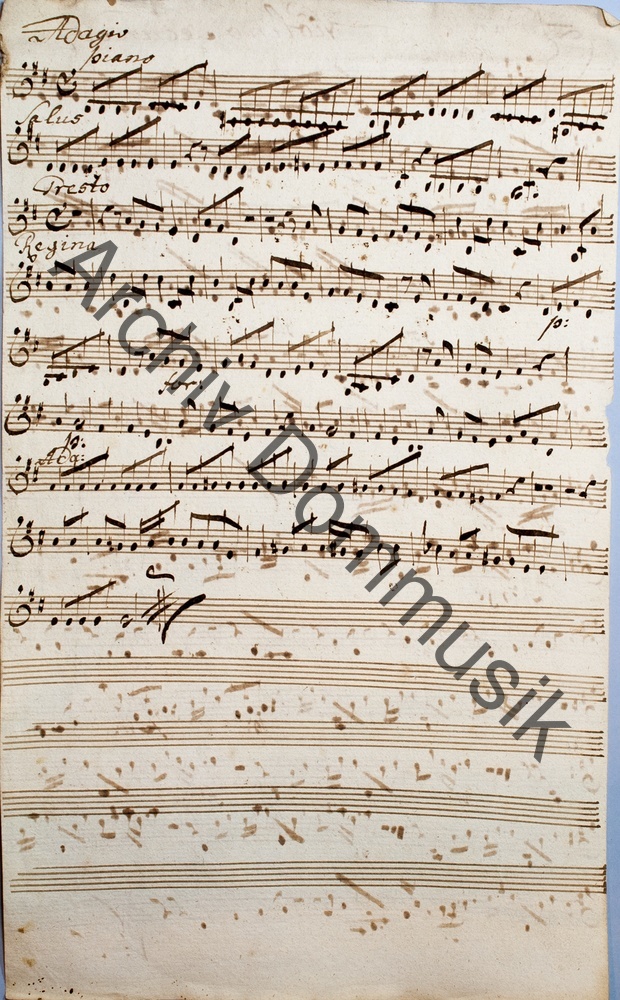 Adagio
piano
Salus
Presto
Regina
p:
for:
p:
Ada:
Archiv Dommusik